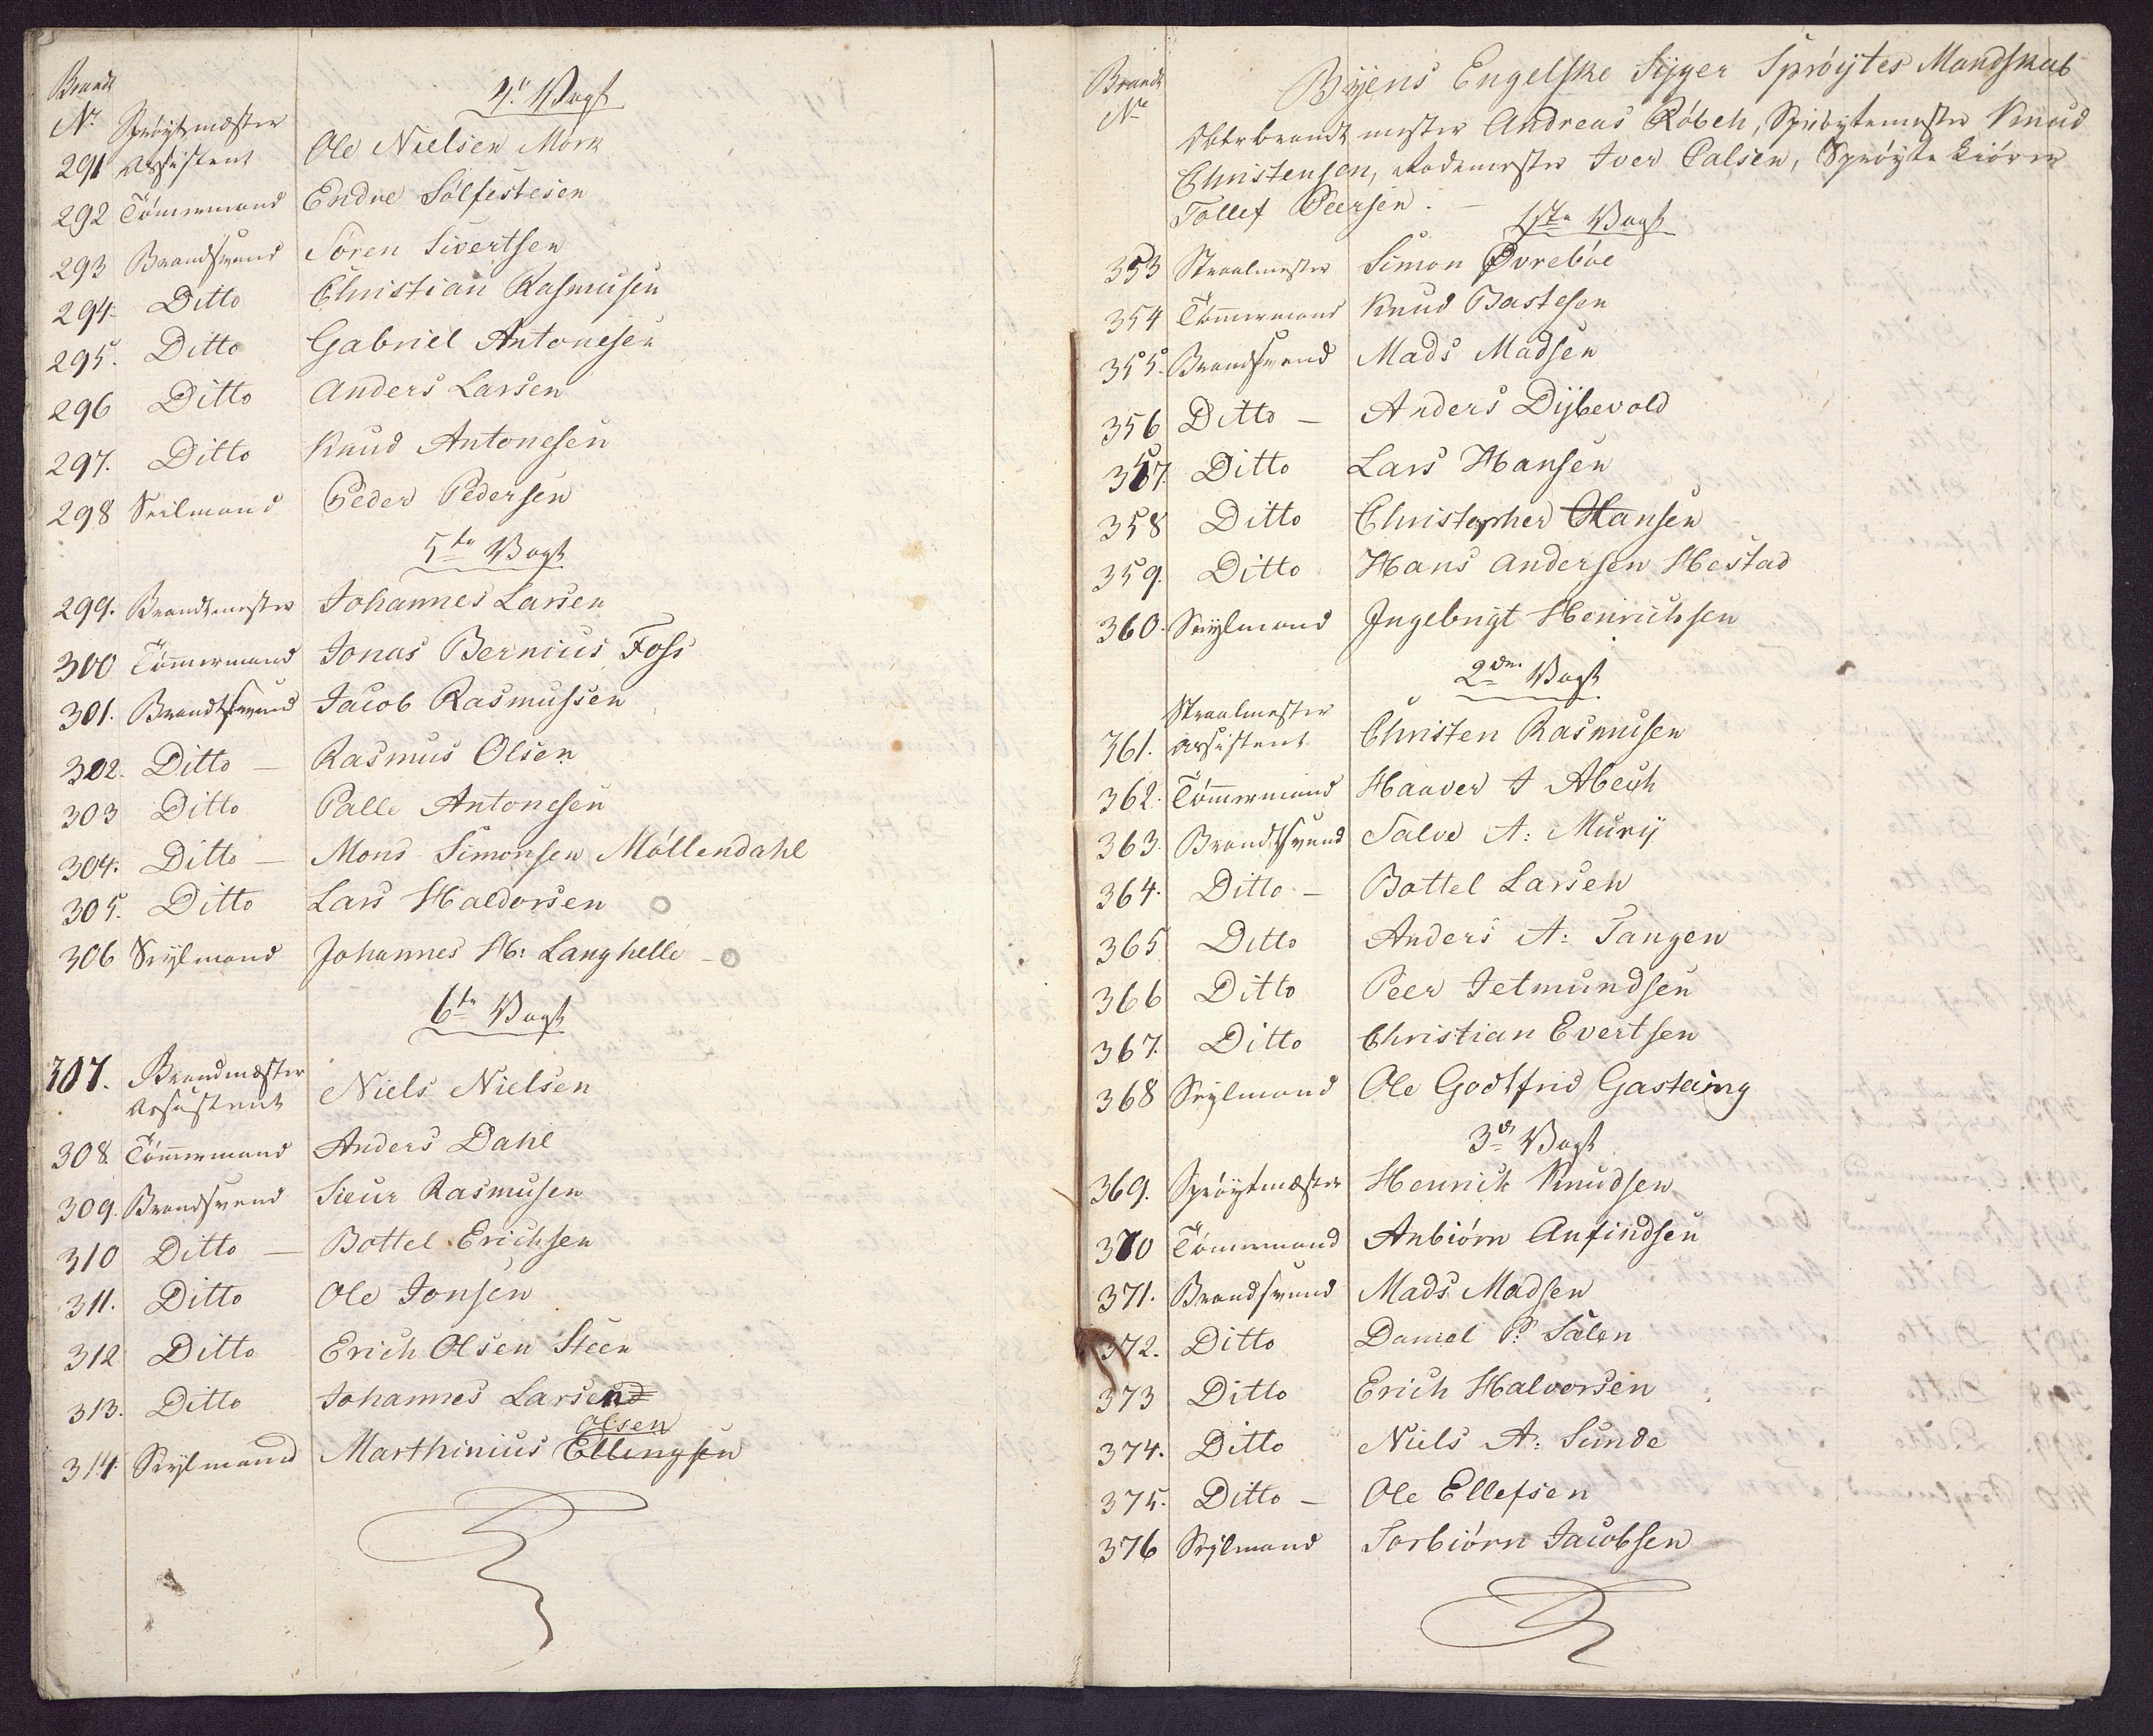 Brandt
No
4de Vagt
Sprøytmester
291 Assistent Ole Nielsen Mork
292 Tömmermand Endre Sølfestesen
293 Brandsvend Søren Sivertsen
294 Ditto Christian Rasmusen
295. Ditto Gabriel Antonesen
296 Ditto Anders Larsen
297. Ditto Knud Antonesen
298 Seilmand Peder Pedersen
5te Vagt
299. Brandtmester Johannes Larsen
300 Tömmermand Jonas Bernius Foss
301. Brandtsvend Jacob Rasmussen
302. Ditto – Rasmus Olsen
303 Ditto Palle Antonesen
304. Ditto – Mons Simonsen Möllendahl
305. Ditto Lars Haldorsen
306 Seylmand Johannes H: Langhelle
6te Vagt
307. Brandmæster
Assistent Niels Nielsen
308 Tömmermand Anders Dahl
309. Brandsvend Sieur Rasmusen
310 Ditto – Bottel Erichsen
311. Ditto Ole Jonsen
312 Ditto Erich Olsen Steen
313. Ditto Johannes Larsen
Olsen
314. Seylmand Marthinius Ellingsen
Brandt
No
Byens Engelske Slyger Sprøytes Mandskab
Overbrandtmester Andreas Röbeh, Sprøytemester Knud
Christensen, Rodemester Iver Palsen, Sprøyte kiörer
Tollef Peersen. –
1ste Vagt
353 Straalmester Simon Øvrebøe
354 Tömmermand Knud Bastesen
355. Brandsvend Mads Madsen
356 Ditto – Anders Dybevold
357. Ditto Lars Hansen
358 Ditto Christopher Hansen
359. Ditto Hans Andersen Hestad
360. Seylmand Ingebrigt Henrichsen
2den Vagt
Straalmester
361. Assistent Christen Rasmusen
362. Tömmermand Haaver J Abech
363. Brandtsvend Salve A: Mury
364. Ditto – Bottel Larsen
365 Ditto Anders A: Tangen
366 Ditto Peer Jetmundsen
367. Ditto Christian Evertsen
368 Seylmand Ole Godtfrid Gasteing
3de Vagt
369. Sprøytmæster Henrich Knudsen
370 Tömmermand Anbiörn Anfindsen
371. Brandsvend Mads Madsen
372. Ditto Daniel P: Salen
373 Ditto Erich Halvorsen
374. Ditto Niels A: Sunde
375. Ditto – Ole Ellefsen
376 Seylmand Torbiörn Jacobsen